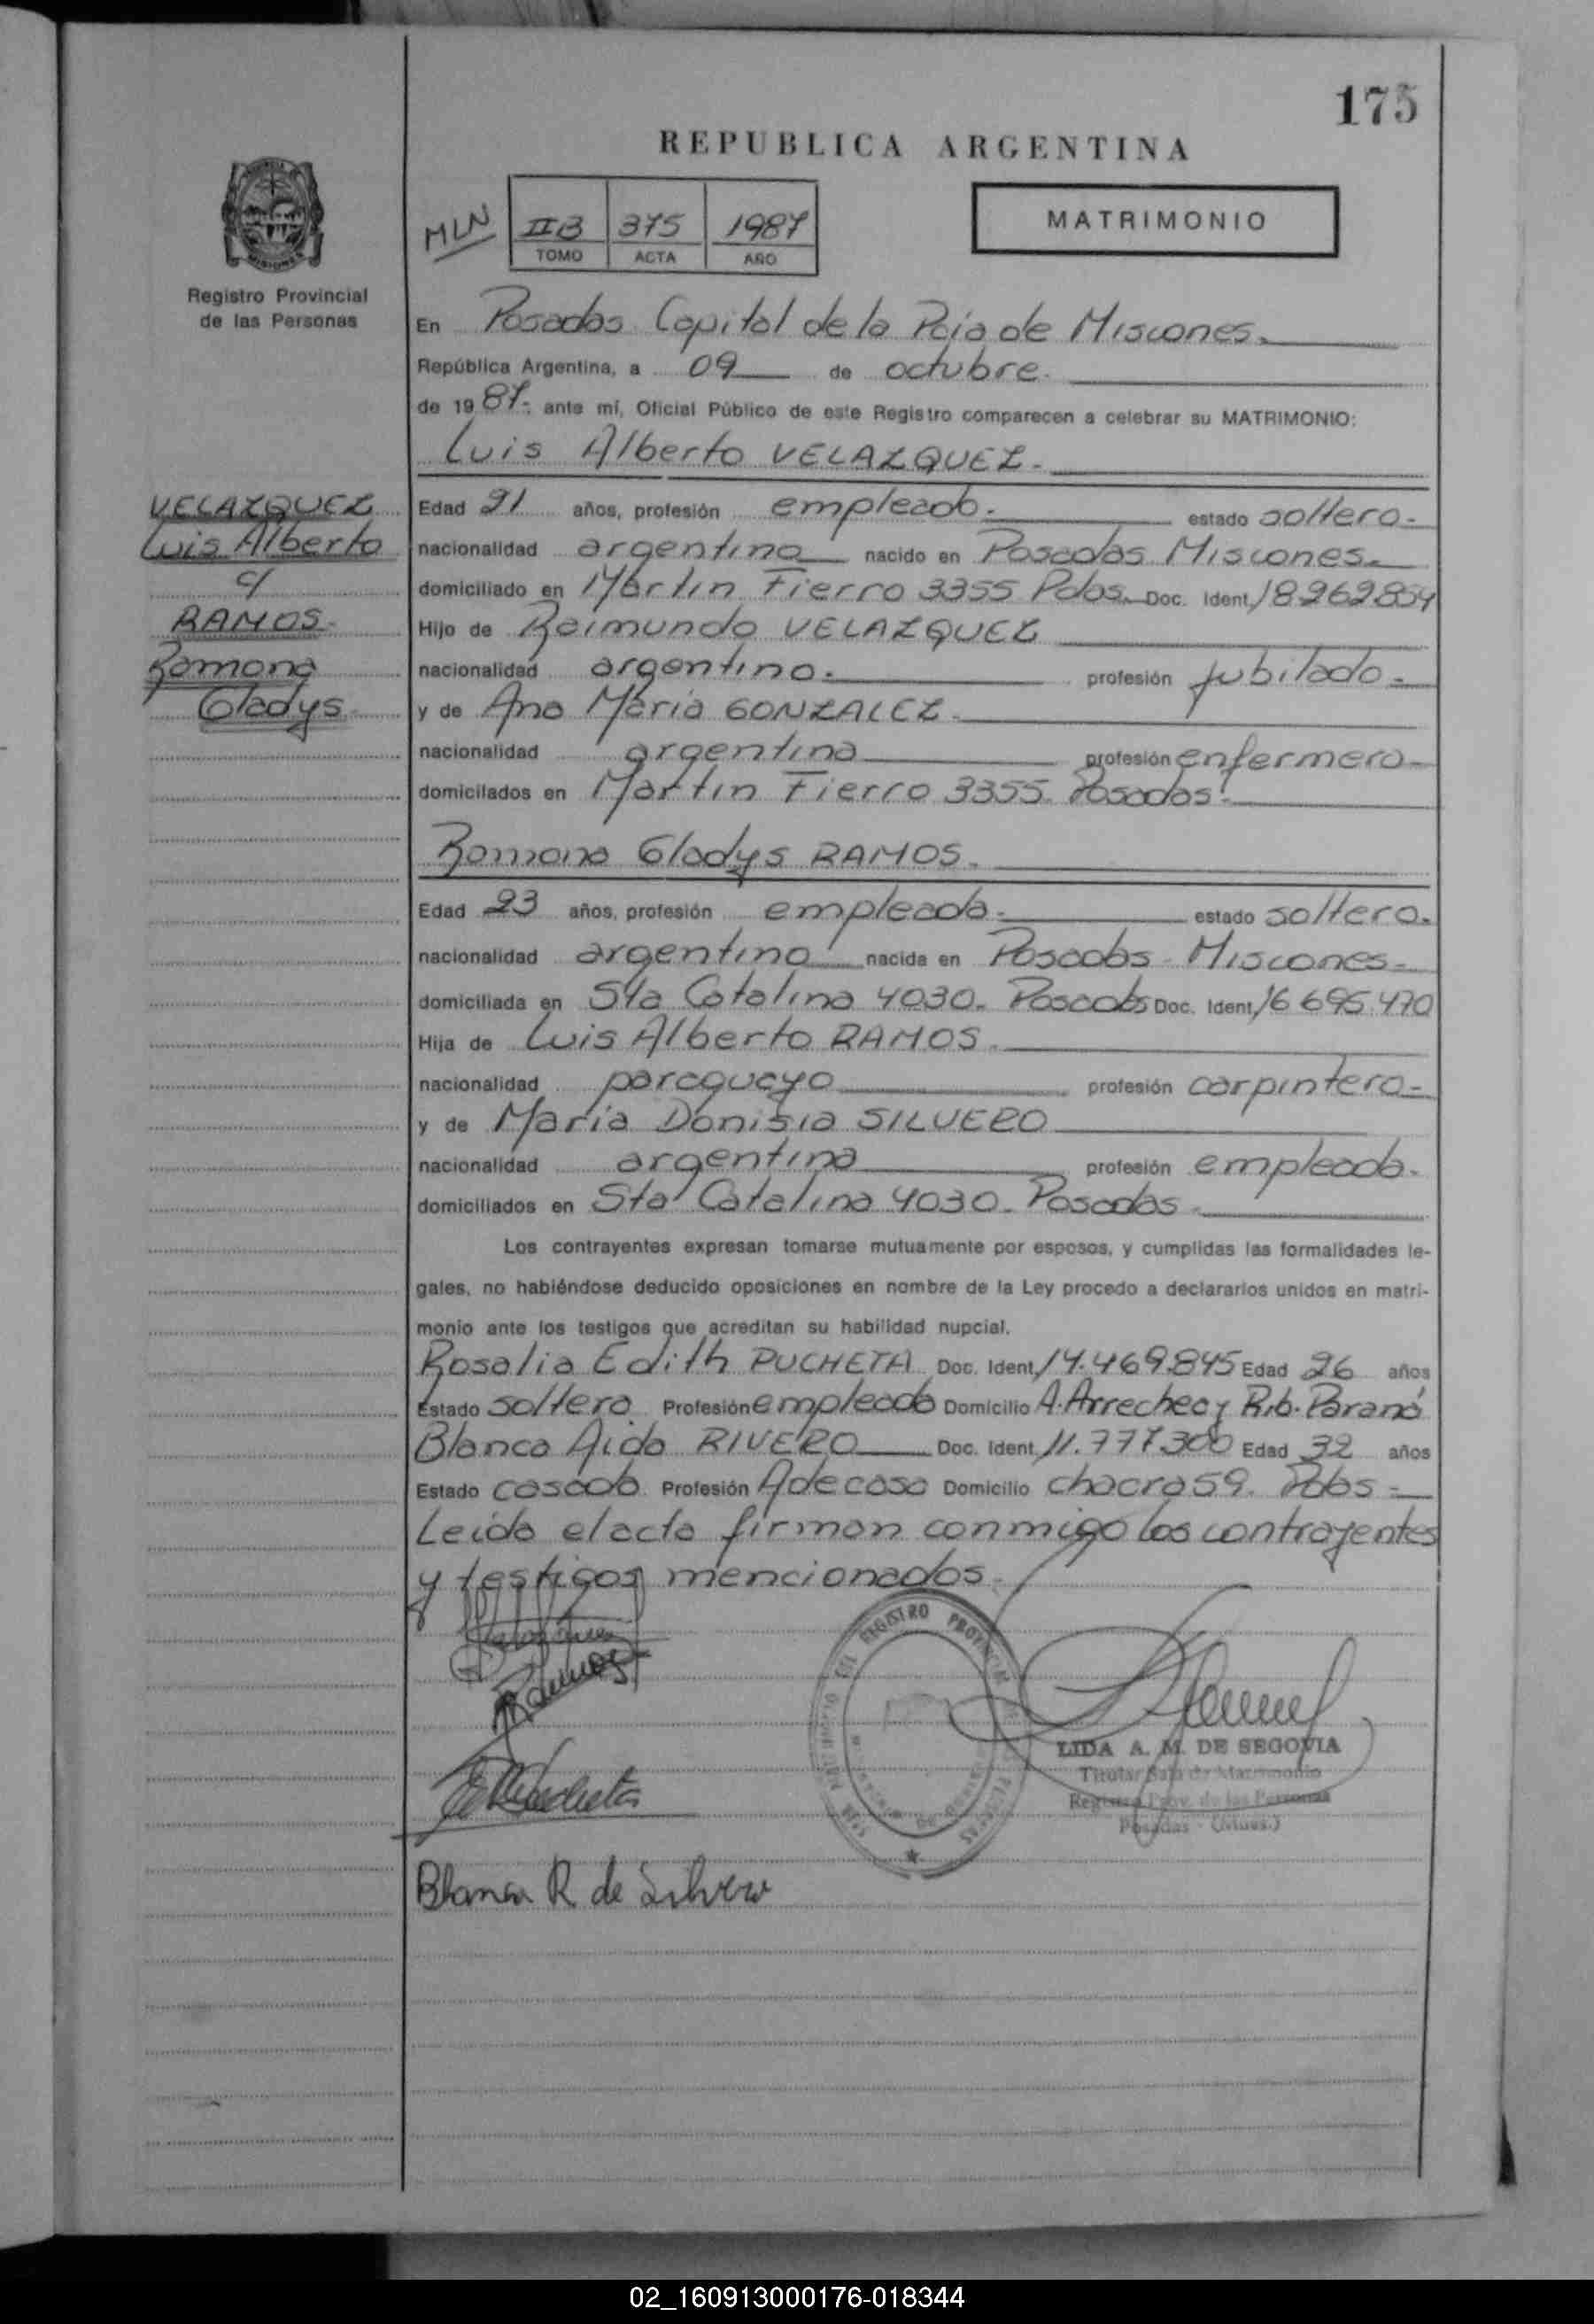 175
REPUBLICA ARGENTINA
MLN
IIB 375 1987
TOMO ACTA AÑO
MATRIMONIO
MISIONES
Registro Provincial
de las Personas
En Posadas Capital de la Pcia de Misiones.
República Argentina, a 09 de octubre.
de 1987. ante mí, Oficial Público de este Registro comparecen a celebrar su MATRIMONIO:
Luis Alberto VELAZQUEZ.
VELAZQUEZ
Luis Alberto
c/
RAMOS
Ramona
Gladys
Edad 21 años, profesión empleado. estado soltero.
nacionalidad argentina nacido en Posadas Misiones.
domiciliado en Martin Fierro 3355 Pdas. Doc. Ident. 18262854
Hijo de Raimundo VELAZQUEZ
nacionalidad argentino. profesión jubilado.
y de Ana Maria GONZALEZ.
nacionalidad argentina profesión enfermera
domiciliados en Martin Fierro 3355. Posadas.
Ramona Gladys RAMOS.
Edad 23 años, profesión empleada. estado soltera.
nacionalidad argentina nacida en Posadas - Misiones.
domiciliada en Sta Catalina 4030. Posadas Doc. Ident. 16 695.470
Hija de Luis Alberto RAMOS.
nacionalidad paraguayo profesión carpintero
y de Maria Donisia SILVERO
nacionalidad argentina profesión empleada.
domiciliados en Sta Catalina 4030. Posadas.
Los contrayentes expresan tomarse mutuamente por esposos, y cumplidas las formalidades le-
gales, no habiéndose deducido oposiciones en nombre de la Ley procedo a declararlos unidos en matri-
monio ante los testigos que acreditan su habilidad nupcial.
Rosalia Edith PUCHETA Doc. Ident. 14.469.845 Edad 26 años
Estado soltera Profesión empleada Domicilio A. Arrechea y R.b. Paraná
Blanca Aida RIVERO Doc. Ident. 11.777.300 Edad 32 años
Estado casada Profesión A de casa Domicilio chacra 59. Pdas
Leida el acta firman conmigo los contrayentes
y testigos mencionados.
Ramos
REGISTRO PROVINCIAL
LIDA A. M. DE SEGOVIA
Titular Sala de Matrimonio
Registro Prov. de las Personas
Posadas - (Mnes.)
Blanca R de Silvero
02_160913000176-018344